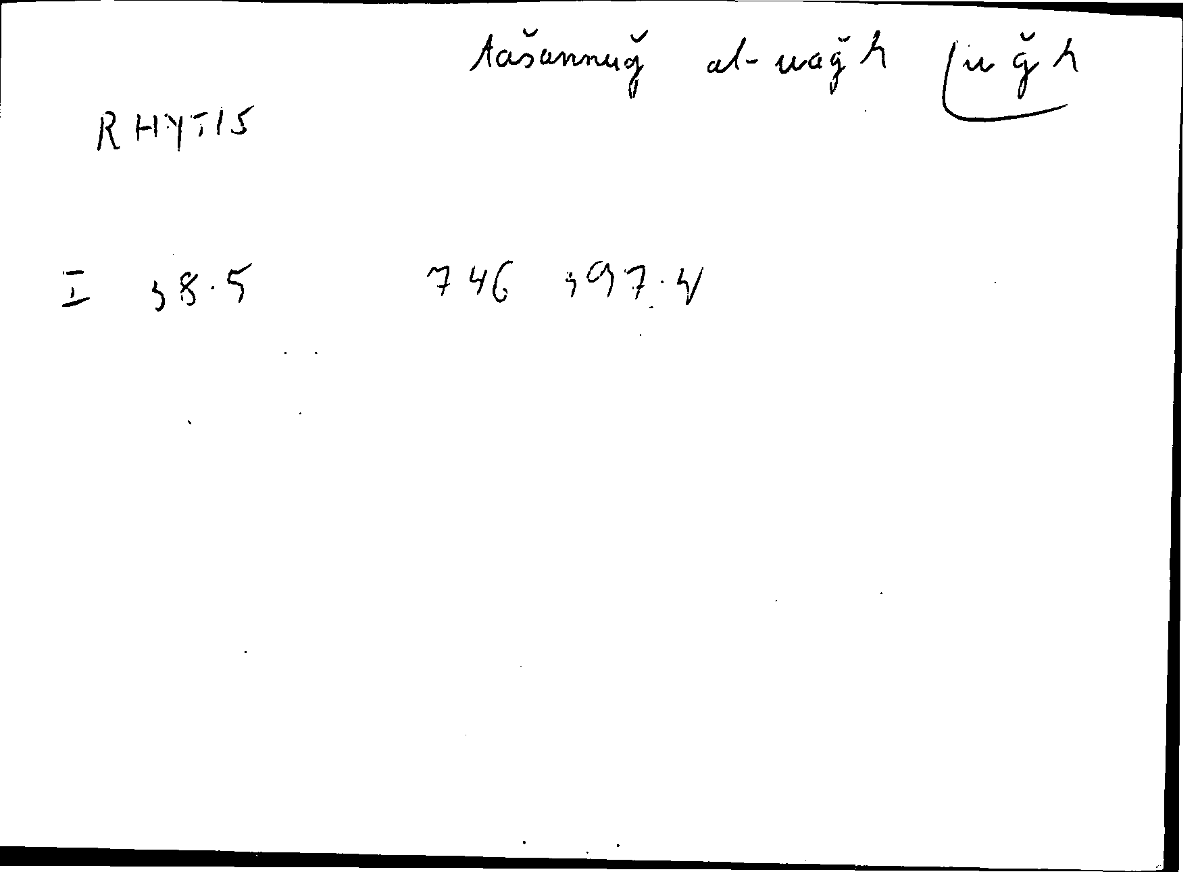 tašannuǧ al-waǧh (wǧh
RHYTIS
I 38.5 746 b97.4